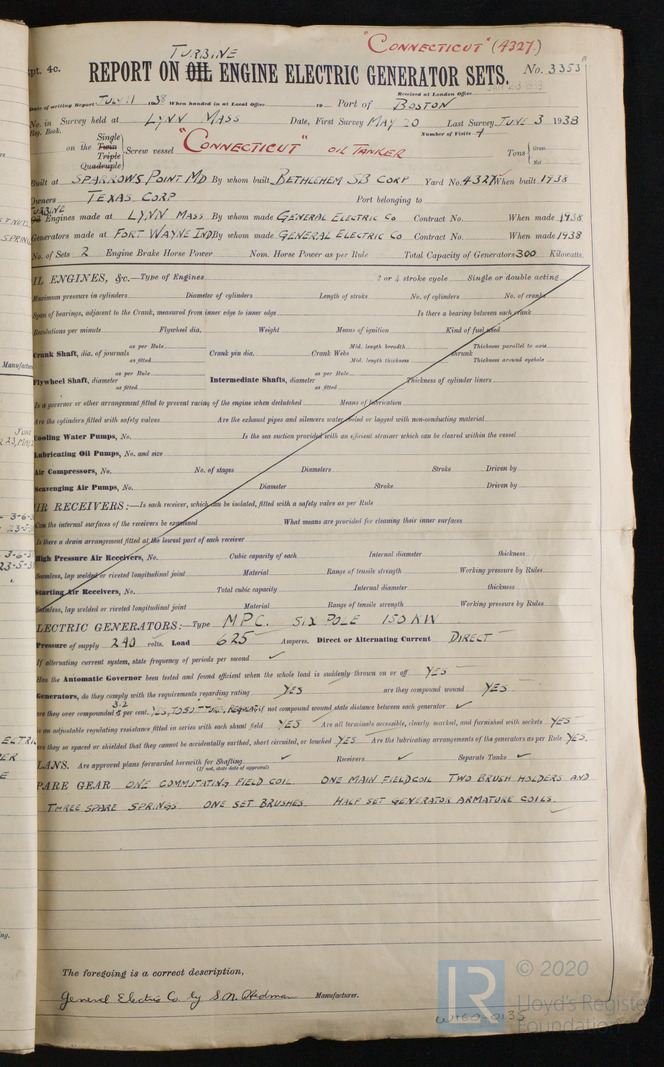 "CONNECTICUT" (4327.)
TURBINE
Rpt. 4c.
REPORT ON OIL ENGINE ELECTRIC GENERATOR SETS.
No. 3353
Received at London Office
Date of writing Report JULY 11 1938 When handed in at Local Office 19 Port of BOSTON
No. in Survey held at LYNN MASS Date, First Survey MAY 20 Last Survey JUNE 3 1938
Reg. Book. Number of Visits 4
Single
on the Twin Screw vessel "CONNECTICUT" OIL TANKER Tons Gross
Triple Net
Quadruple
Built at SPARROWS POINT MD By whom built BETHLEHEM SB CORP Yard No. 4327 When built 1938
Owners TEXAS CORP Port belonging to
TURBINE
Oil Engines made at LYNN MASS By whom made GENERAL ELECTRIC CO Contract No. When made 1938
Generators made at FORT WAYNE IND By whom made GENERAL ELECTRIC CO Contract No. When made 1938
No. of Sets 2 Engine Brake Horse Power Nom. Horse Power as per Rule Total Capacity of Generators 300 Kilowatts.
IL ENGINES, &c.—Type of Engines 2 or 4 stroke cycle Single or double acting
Maximum pressure in cylinders Diameter of cylinders Length of stroke No. of cylinders No. of cranks
Span of bearings, adjacent to the Crank, measured from inner edge to inner edge Is there a bearing between each crank
Revolutions per minute Flywheel dia. Weight Means of ignition Kind of fuel used
as per Rule Mid. length breadth Thickness parallel to axis
Crank Shaft, dia. of journals Crank pin dia. Crank Webs shrunk
as fitted Mid. length thickness Thickness around eyehole
as per Rule as per Rule
Flywheel Shaft, diameter Intermediate Shafts, diameter Thickness of cylinder liners
as fitted as fitted
Is a governor or other arrangement fitted to prevent racing of the engine when declutched Means of lubrication
Are the cylinders fitted with safety valves Are the exhaust pipes and silencers water cooled or lagged with non-conducting material
Cooling Water Pumps, No. Is the sea suction provided with an efficient strainer which can be cleared within the vessel
Lubricating Oil Pumps, No. and size
Air Compressors, No. No. of stages Diameters Stroke Driven by
Scavenging Air Pumps, No. Diameter Stroke Driven by
IR RECEIVERS:—Is each receiver, which can be isolated, fitted with a safety valve as per Rule
Can the internal surfaces of the receivers be examined What means are provided for cleaning their inner surfaces
Is there a drain arrangement fitted at the lowest part of each receiver
High Pressure Air Receivers, No. Cubic capacity of each Internal diameter thickness
Seamless, lap welded or riveted longitudinal joint Material Range of tensile strength Working pressure by Rules
Starting Air Receivers, No. Total cubic capacity Internal diameter thickness
Seamless, lap welded or riveted longitudinal joint Material Range of tensile strength Working pressure by Rules
LECTRIC GENERATORS:—Type MPC. SIX POLE 150 KW
Pressure of supply 240 volts. Load 625 Amperes. Direct or Alternating Current DIRECT
If alternating current system, state frequency of periods per second
Has the Automatic Governor been tested and found efficient when the whole load is suddenly thrown on or off YES
Generators, do they comply with the requirements regarding rating YES are they compound wound YES
are they over compounded 5 per cent. YES, if not compound wound state distance between each generator
3.2
is an adjustable regulating resistance fitted in series with each shunt field YES Are all terminals accessible, clearly marked, and furnished with sockets YES
are they so spaced or shielded that they cannot be accidentally earthed, short circuited, or touched YES Are the lubricating arrangements of the generators as per Rule YES.
LANS. Are approved plans forwarded herewith for Shafting Receivers Separate Tanks
(If not, state date of approval)
PARE GEAR ONE COMMUTATING FIELD COIL ONE MAIN FIELD COIL TWO BRUSH HOLDERS AND
THREE SPARE SPRINGS ONE SET BRUSHES HALF SET GENERATOR ARMATURE COILS.
The foregoing is a correct description,
General Electric Co. by Manufacturer.
© 2020
Lloyd's Register
Foundation